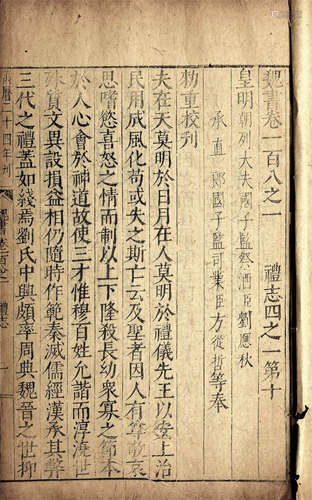 魏書卷一百八之一 禮志四之一第十
皇明朝列大夫國子監祭酒臣劉應秋
承直郎國子監司業臣方從哲等奉
勑重校刋
夫在天莫明於日月在人莫明於禮儀先王以安上治
民用成風化苟或失之斯亡云及聖者因人有尊敬哀
思嗜慾喜怒之情而制以上下隆殺長幼衆寡之節本
於人心會於神道故使三才惟穆百姓允諧而淳澆世
殊質文異設損益相仍隨時作範秦滅儒經漢承其弊
三代之禮蓋如綫焉劉氏中興頗率周典魏晉之世抑
二十四年刋
禮志
一